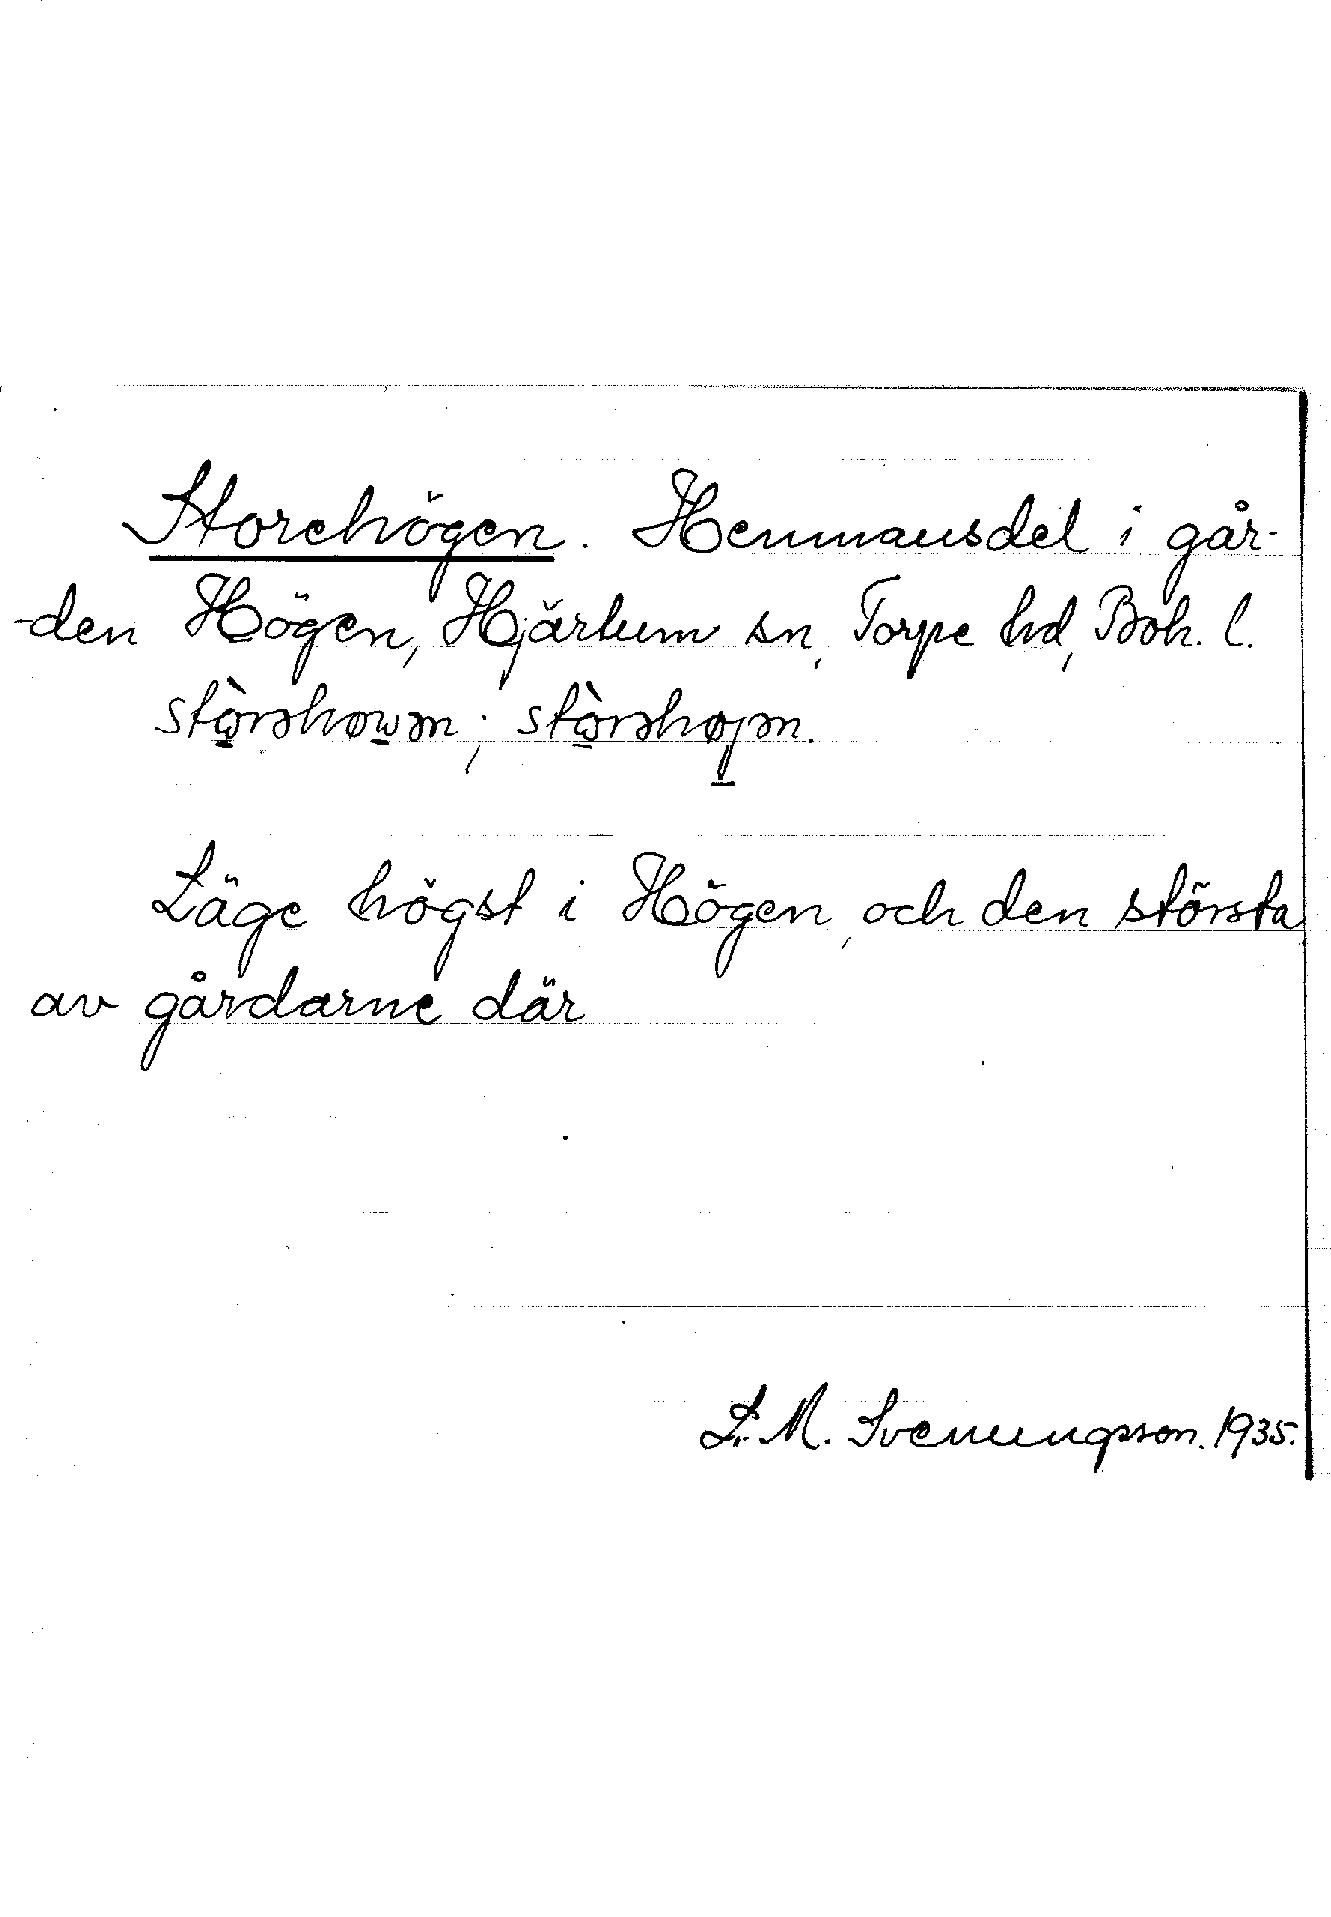 Storehögen. Hemmansdel i går-
-den Högen, Hjärtum sn, Torpe hd, Boh. l.
stòrəhøwən; stòrəhøjən.
Läge högst i Högen, och den största
av gårdarne där
L. M. Svenungsson. 1935.